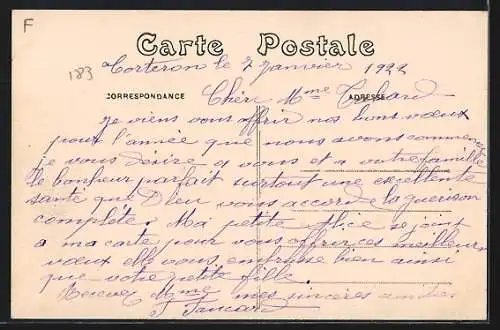 F
Carte Postale
183
Torteron le 2 Janvier 1922
CORRESPONDANCE
ADRESSE
Chère Mme
je viens vous offrir nos bons vœux
pour l'année que nous avons commencer
je vous desire a vous et a votre famille
le bonheur parfait surtout une excellente
santé que Dieu vous accorde la guerison
complete. Ma petite Alice se joint
a ma carte pour vous offrir ces meilleurs
vœux elle vous embrasse bien ainsi
que votre petite fille.
Recevez Mme mes sincères